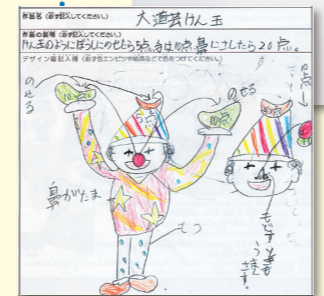 作品名(必ず記入してください) 大道芸けん玉
作品の説明(必ず記入してください)
けん玉のようにぼうしにのせたら5点、手は10点、鼻にさしたら20点。
デザイン画記入欄(必ず色エンピツや絵具などで色をつけてください)
のせる
のせる
10点
5点
10点
10点
鼻がたま
もつ